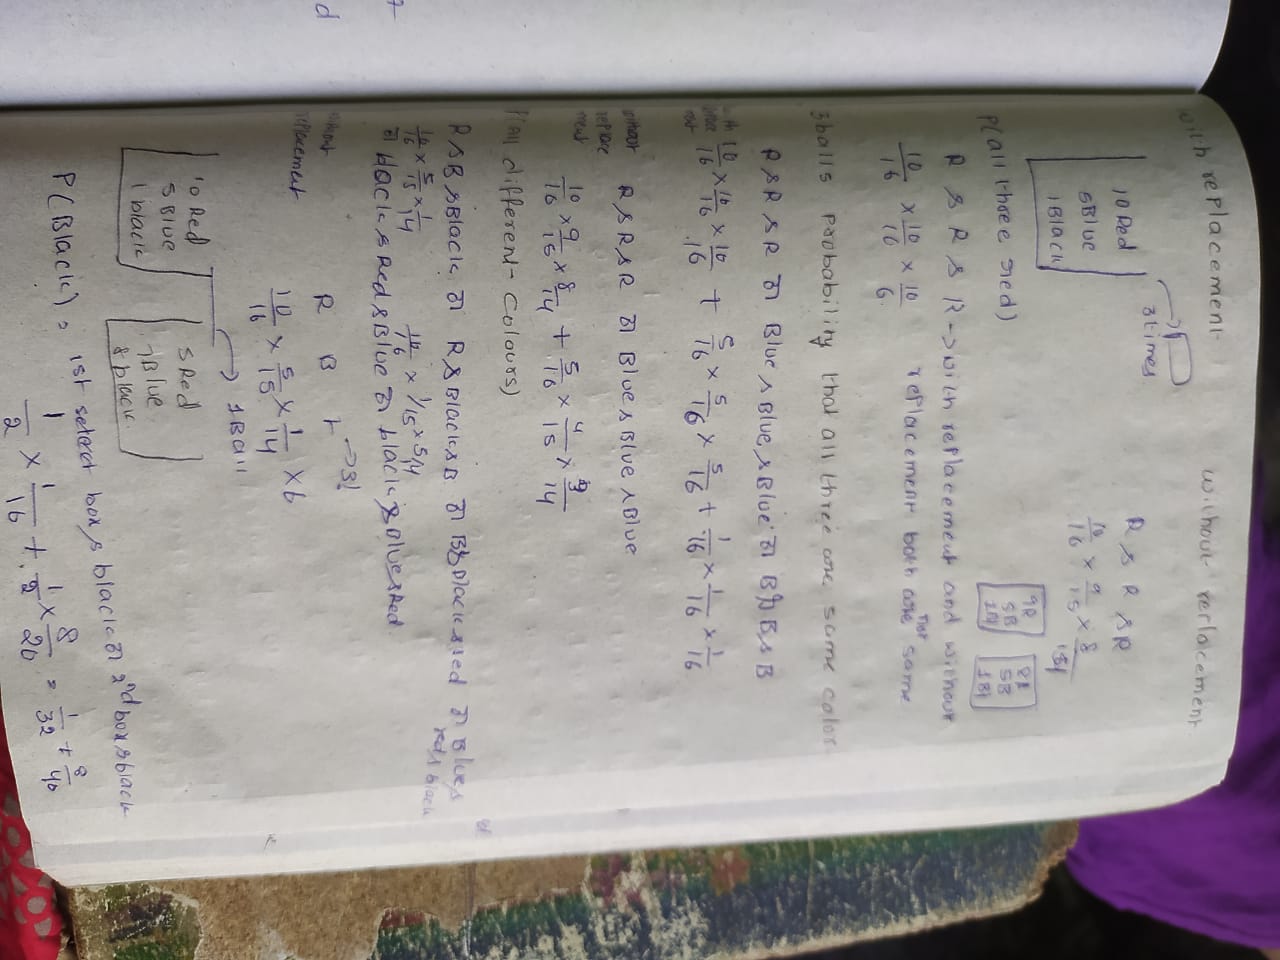 with replacement
without replacement
10 Red
5 Blue
1 Black
3 times
R & R & R
10/16 × 9/15 × 8/14
P(all three red)
R & R & R → with replacement and without
replacement both are not same
10/16 × 10/16 × 10/6
9R
5B
1Bl
8R
5B
1Bl
3 balls probability that all three are same color
R & R & R or Blue & Blue & Blue or Bl & Bl & Bl
10/16 × 10/16 × 10/16 + 5/16 × 5/16 × 5/16 + 1/16 × 1/16 × 1/16
without replacement
R & R & R or Blue & Blue & Blue
10/16 × 9/15 × 8/14 + 5/16 × 4/15 × 3/14
P(all different colours)
R & B & Black or R & Black & B or B & Black & red or Blue &
red & black
10/16 × 5/15 × 1/14
10/16 × 1/15 × 5/14
or Black & Red & Blue or black & Blue & red
without replacement
R B
→ 3!
10/16 × 5/15 × 1/14 × 6
→ 1 Ball
10 Red
5 Blue
1 black
5 Red
7 Blue
8 black
P(Black) = 1st select box & black or 2nd box & black
1/2 × 1/16 + 1/2 × 8/20 = 1/32 + 8/40